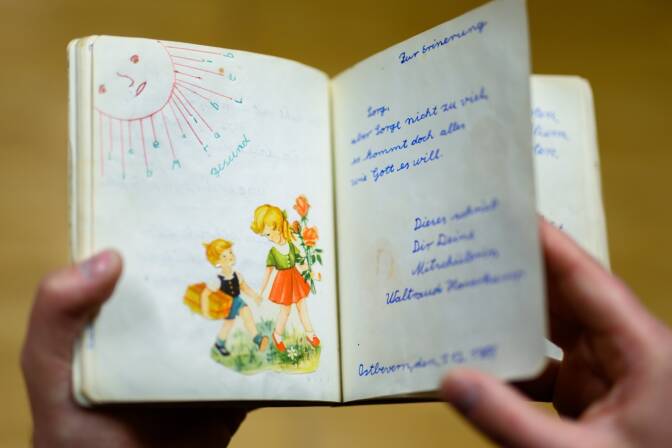 gesund
Zur Erinerung
Sorg,
aber Sorge nicht zu viel,
es kommt doch alles
wie Gott es will.
Dieses schrieb
Dir Deine
Mitschülerin
Waltraud
Ostbevern, den